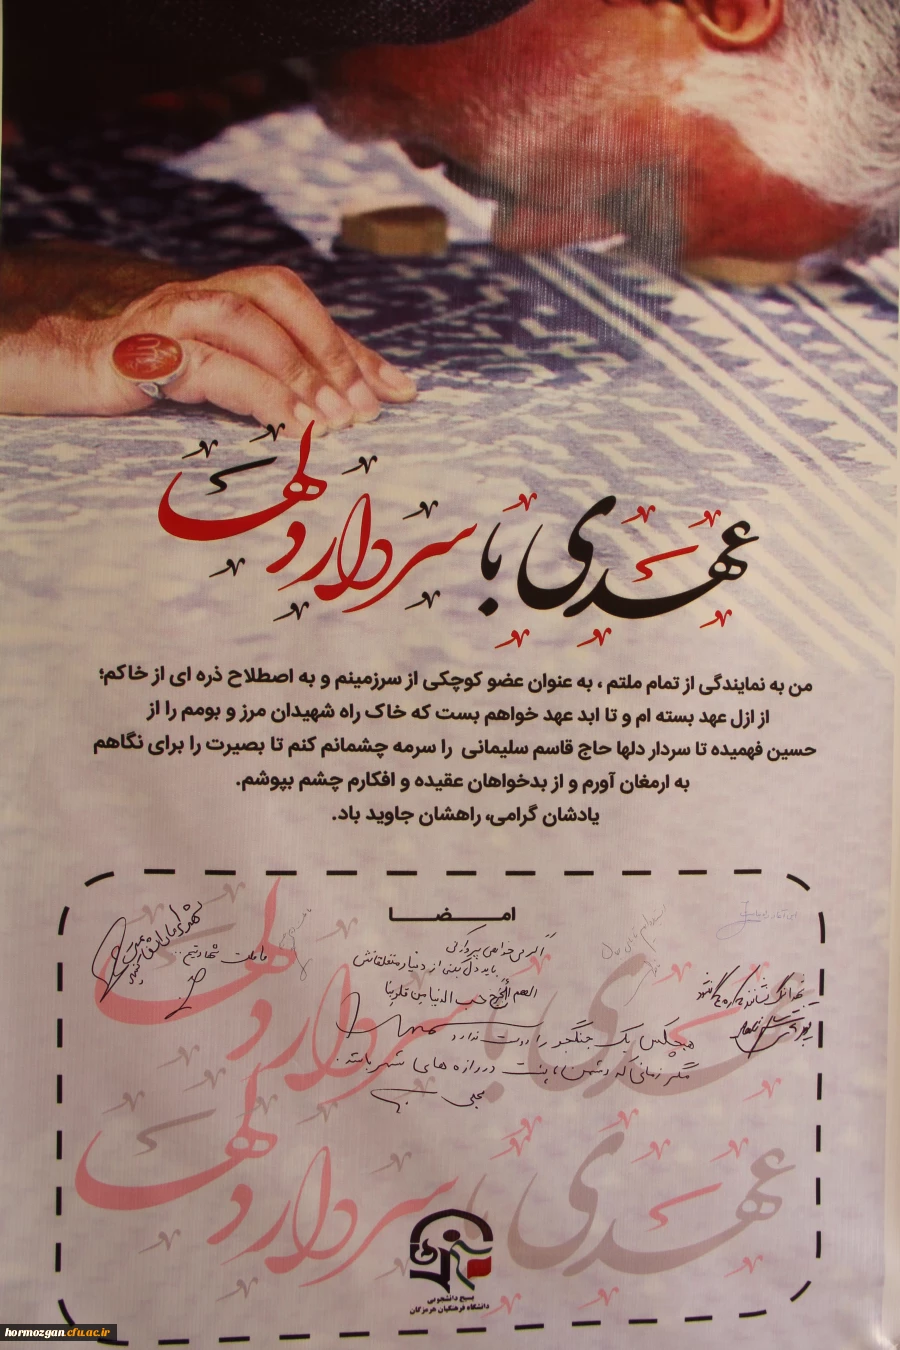 عهدی با سردار دلها
من به نمایندگی از تمام ملتم ، به عنوان عضو کوچکی از سرزمینم و به اصطلاح ذره ای از خاکم؛
از ازل عهد بسته ام و تا ابد عهد خواهم بست که خاک راه شهیدان مرز و بومم را از
حسین فهمیده تا سردار دلها حاج قاسم سلیمانی را سرمه چشمانم کنم تا بصیرت را برای نگاهم
به ارمغان آورم و از بدخواهان عقیده و افکارم چشم بپوشم.
یادشان گرامی، راهشان جاوید باد.
امضا
اگر می خواهی
باید دل بکنی از دنیا و متعلقاتش
اللهم اخرج حب الدنیا من قلوبنا
هیچکس یک جنگجو را دوست ندارد
مگر زمانی که دشمن پشت دروازه های شهر باشد.
عهدی با سردار دلها
عهدی با سردار دلها
بسیج دانشجویی
دانشگاه فرهنگیان هرمزگان
hormozgan.cfu.ac.ir